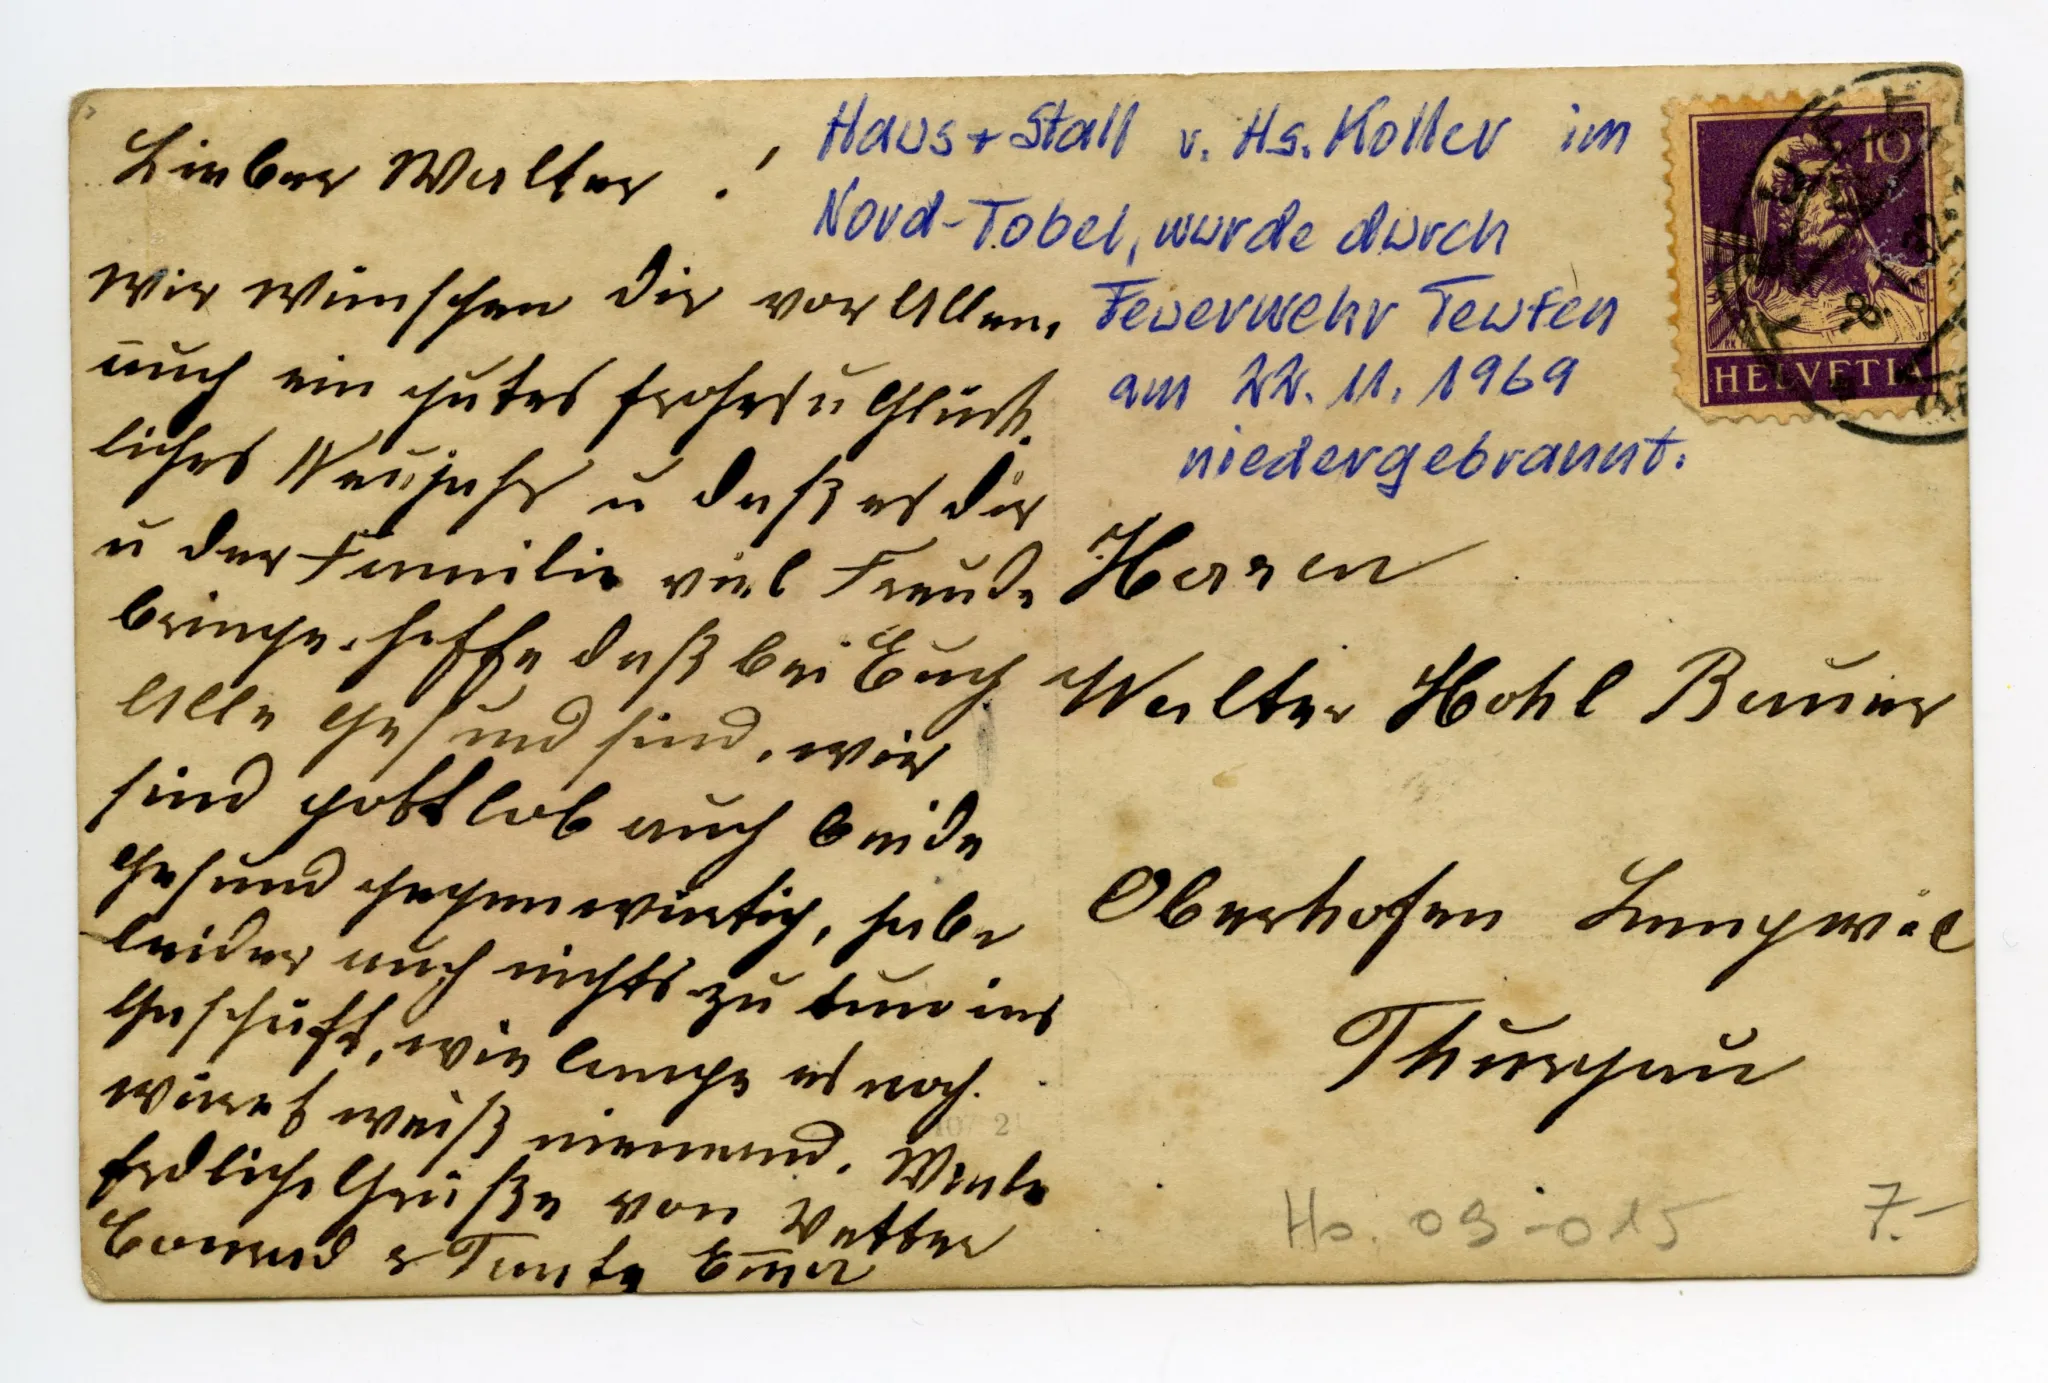 Lieber Walter !
Wir wünschen Dir vor Allem,
auch ein gutes frohes u Glück-
liches Neujahr u daß es dir
u der Familie viel Freude
bringe. hoffe daß bei Euch
Alle gesund sind, wir
sind gottlob auch beide
gesund gegenwärtig, habe
leider auch nichts zu tun ins
Geschäft, wie lange es noch
währet weiß niemand. Viele
herzliche Grüße von Vetter
Conrad & Tante
Haus + Stall v. Hs. Koller im
Nord-Tobel, wurde durch
Feuerwehr Teufen
am 22. 11. 1969
niedergebrannt.
10
HELVETIA
Herren
Walter Hohl Bauer
Oberhofen Lengwil
Thurgau
Ho. 09-015
7.-